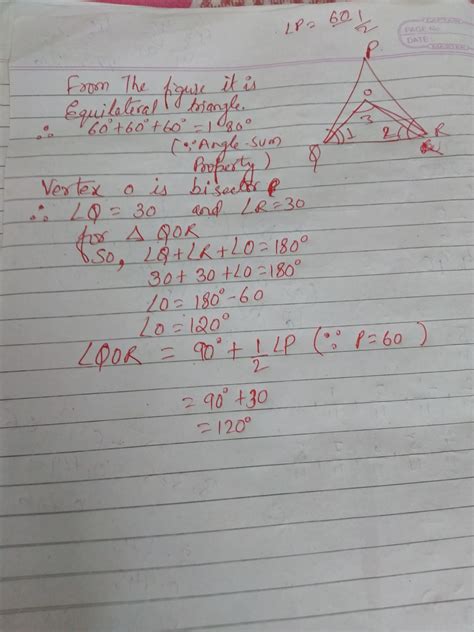 ∠P = 60 1/2
PAGE No.
DATE
P
O
3
1
2
Q
R
From The figure it is
Equilateral triangle.
∴ 60°+60°+60° = 180°
(∵ Angle-sum
Property)
Vertex o is bisecter P
∴ ∠Q = 30 and ∠R = 30
for Δ QOR
So, ∠Q + ∠R + ∠O = 180°
30 + 30 + ∠O = 180°
∠O = 180° - 60
∠O = 120°
∠QOR = 90° + 1/2 ∠P (∵ P = 60)
= 90° + 30
= 120°